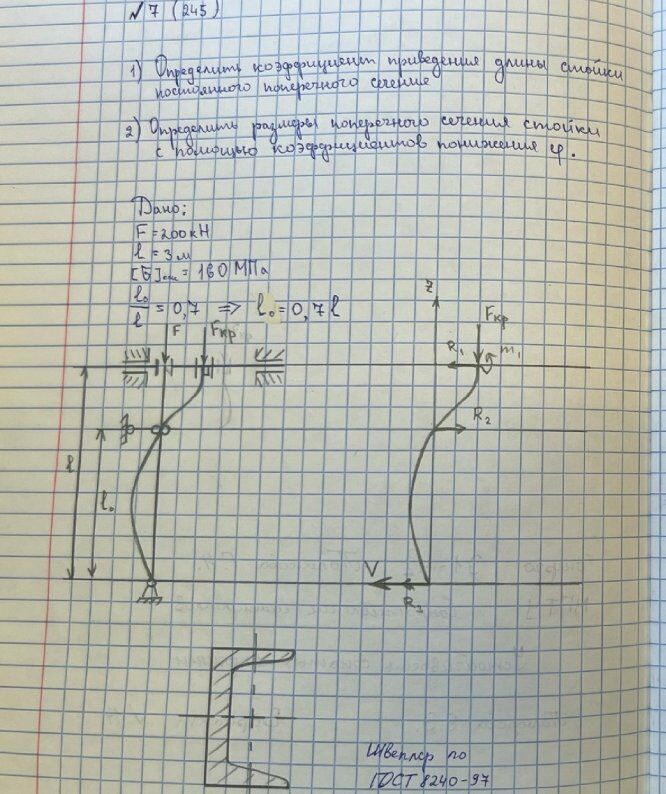 № 7 (245)
1) Определить коэффициент приведения длины стойки
постоянного поперечного сечения
2) Определить размеры поперечного сечения стойки
с помощью коэффициентов понижения φ.
Дано:
F = 200 кН
l = 3 м
[σ]сж = 160 МПа
l₀/l = 0,7 => l₀ = 0,7 l
F Fкр
z
Fкр
R₁ m₁
R₂
l
l₀
V
R₃
Швеллер по
ГОСТ 8240-97